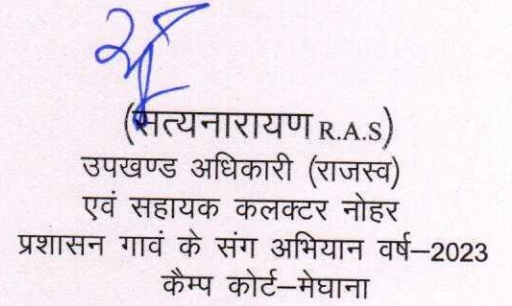 (सत्यनारायण R.A.S)
उपखण्ड अधिकारी (राजस्व)
एवं सहायक कलक्टर नोहर
प्रशासन गावं के संग अभियान वर्ष–2023
कैम्प कोर्ट–मेघाना